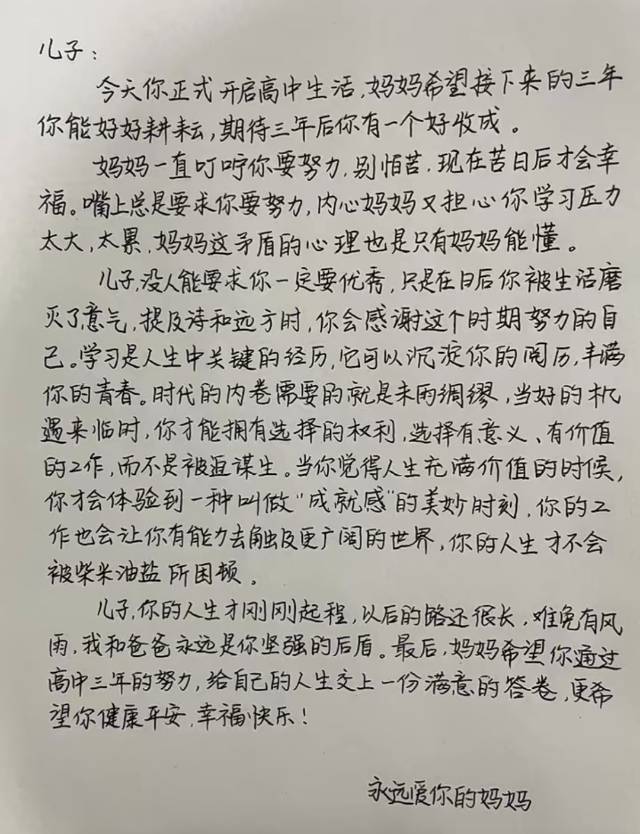 儿子：
今天你正式开启高中生活,妈妈希望接下来的三年
你能好好耕耘,期待三年后你有一个好收成。
妈妈一直叮咛你要努力,别怕苦.现在苦日后才会幸
福。嘴上总是要求你要努力,内心妈妈又担心你学习压力
太大,太累,妈妈这矛盾的心理也是只有妈妈能懂。
儿子,没人能要求你一定要优秀,只是在日后你被生活磨
灭了意气,提及诗和远方时,你会感谢这个时期努力的自
己。学习是人生中关键的经历,它可以沉淀你的阅历,丰满
你的青春。时代的内卷需要的就是未雨绸缪,当好的机
遇来临时,你才能拥有选择的权利,选择有意义、有价值
的工作,而不是被迫谋生。当你觉得人生充满价值的时候,
你才会体验到一种叫做"成就感"的美妙时刻,你的工
作也会让你有能力去触及更广阔的世界,你的人生才不会
被柴米油盐所困顿。
儿子,你的人生才刚刚起程,以后的路还很长,难免有风
雨,我和爸爸永远是你坚强的后盾。最后,妈妈希望你通过
高中三年的努力,给自己的人生交上一份满意的答卷,更希
望你健康平安,幸福快乐!
永远爱你的妈妈